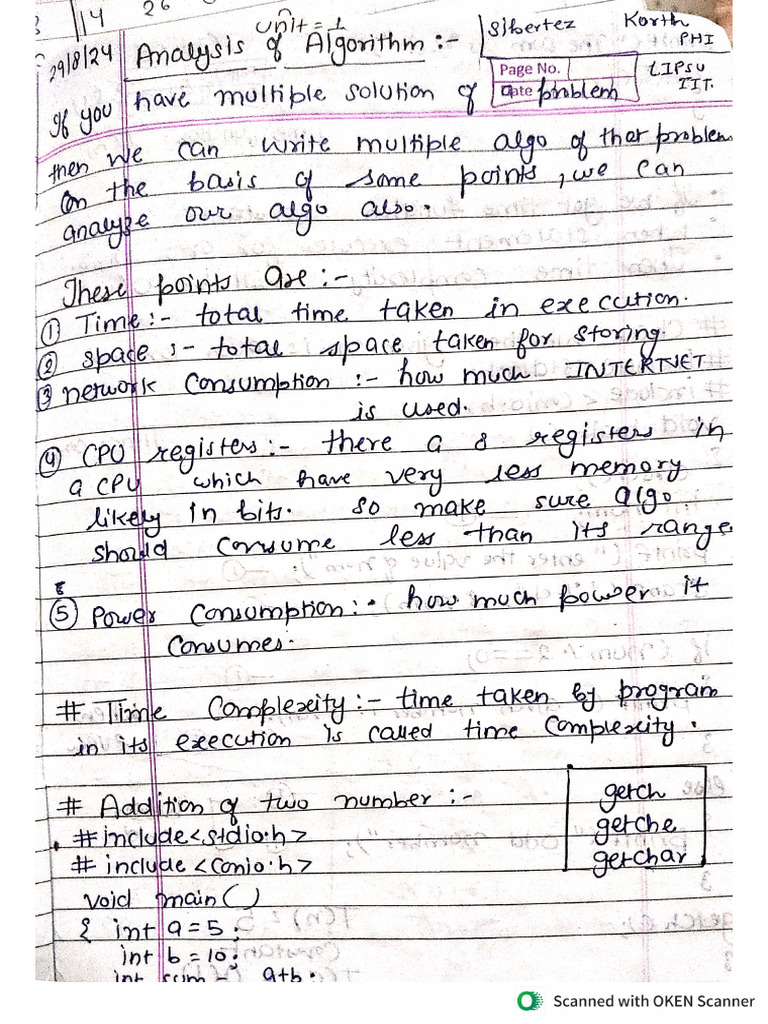 14 26
29/8/24
unit = 1
Analysis of Algorithm :-
Silbertez Korth
PHI
LIPSU
IIT.
Page No.
Date
If you have multiple solution of a problem
then we can write multiple algo of that problem
On the basis of some points, we can
analyze our algo also.
These points are :-
① Time :- total time taken in execution.
② space :- total space taken for storing.
③ network Consumption :- how much INTERTNET
is used.
④ CPU registers :- there a 8 registers in
a CPU which have very less memory
likely in bits. so make sure algo
should consume less than its range
⑤ Power Consumption :- how much power it
Consumes.
# Time Complexity :- time taken by program
in its execution is called time Complexity.
# Addition of two number :-
#include<stdio.h>
# include <conio.h>
void main()
{ int a = 5;
int b = 10;
int sum = a+b;
getch
getche
getchar
Scanned with OKEN Scanner